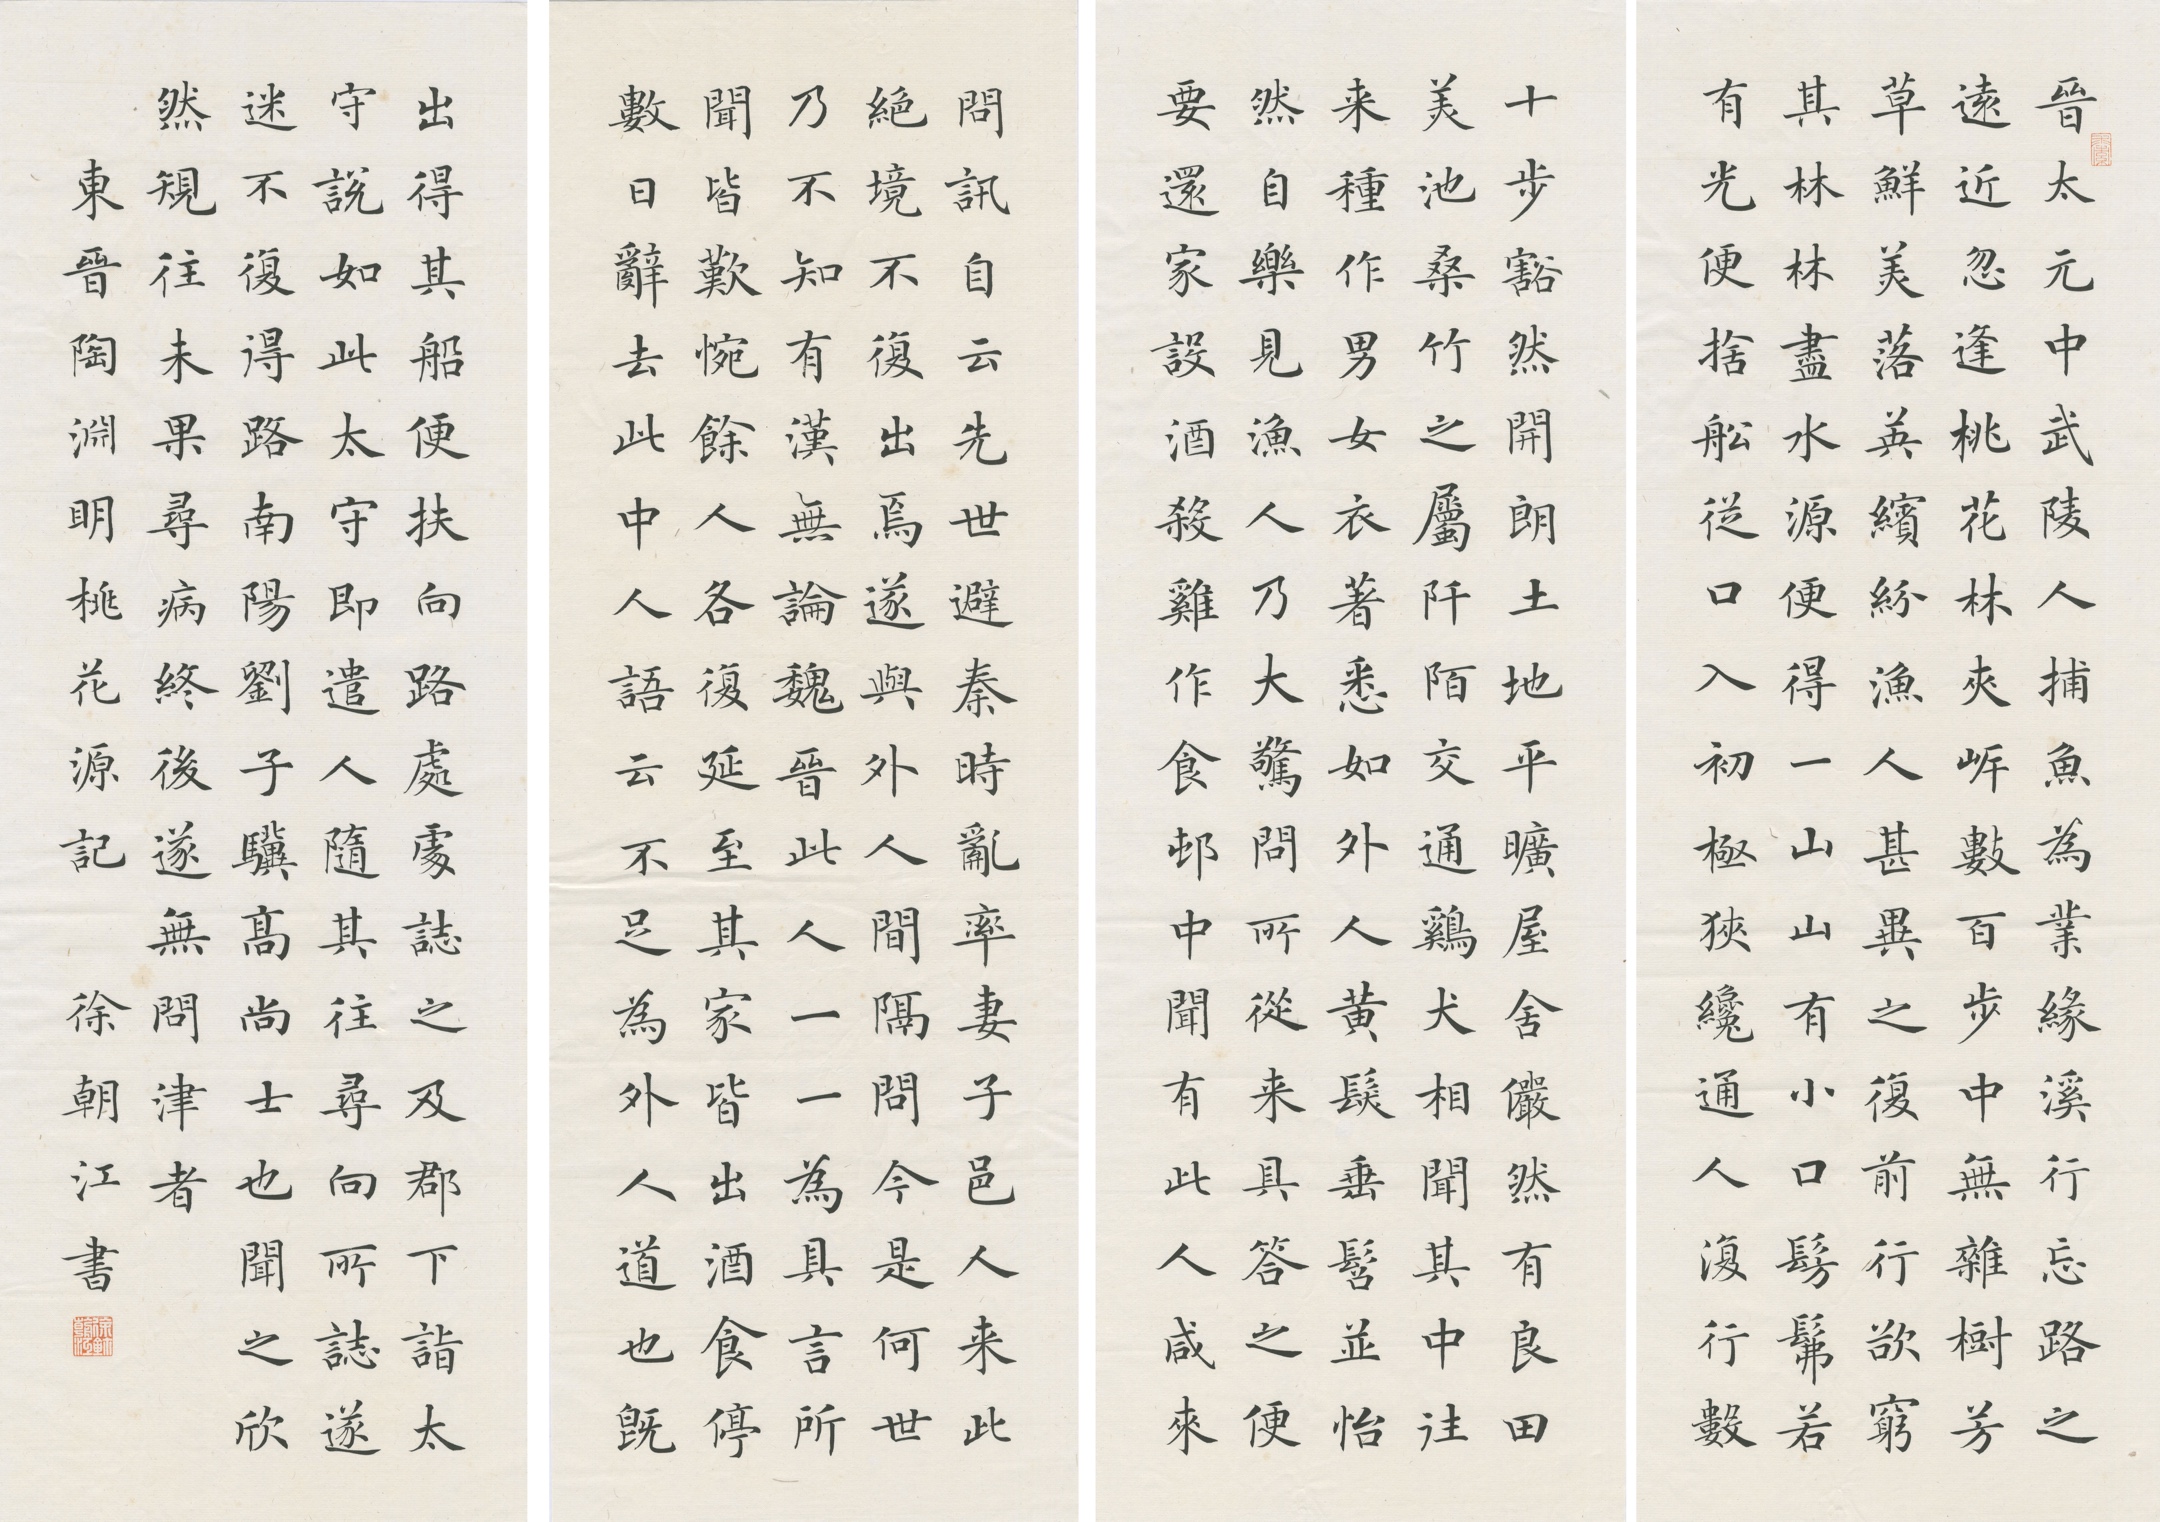 晉太元中武陵人捕魚為業緣溪行忘路之
遠近忽逢桃花林夾岸數百步中無雜樹芳
草鮮美落英繽紛漁人甚異之復前行欲窮
其林林盡水源便得一山山有小口髣髴若
有光便捨舩從口入初極狹纔通人復行數
十步豁然開朗土地平曠屋舍儼然有良田
美池桑竹之屬阡陌交通鷄犬相聞其中往
来種作男女衣著悉如外人黃髮垂髫並怡
然自樂見漁人乃大驚問所從来具答之便
要還家設酒殺雞作食邨中聞有此人咸來
問訊自云先世避秦時亂率妻子邑人来此
絕境不復出焉遂與外人間隔問今是何世
乃不知有漢無論魏晉此人一一為具言所
聞皆歎惋餘人各復延至其家皆出酒食停
數日辭去此中人語云不足為外人道也既
出得其船便扶向路處處誌之及郡下詣太
守說如此太守即遣人隨其往尋向所誌遂
迷不復得路南陽劉子驥高尚士也聞之欣
然規往未果尋病終後遂無問津者
東晉陶淵明桃花源記 徐朝江書